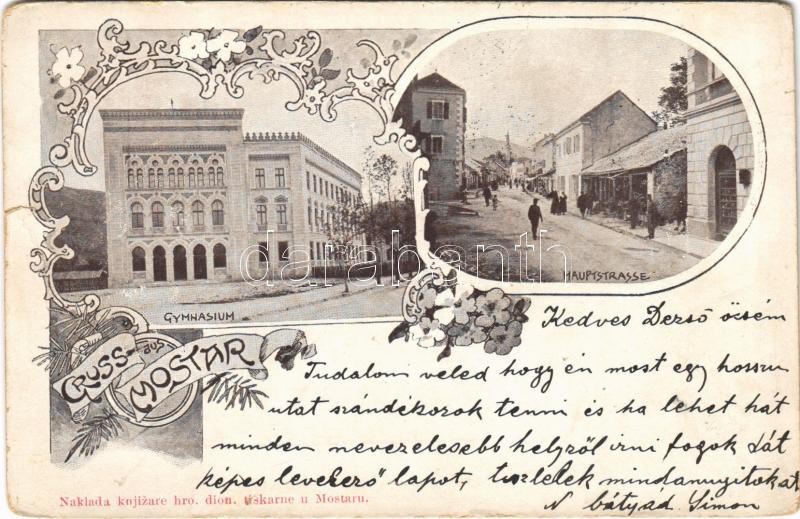 GYMNASIUM
HAUPTSTRASSE
GRUSS aus MOSTAR
Kedves Dezső öcsém
Tudatom veled hogy én most egy hosszu
utat szándékozok tenni és ha lehet hát
minden nevezetesebb helyről irni fogok Lát
képes levelező lapot, tisztelek mindannyitokat
bátyád Simon
Naklada knjižare hro. dion. tiskarne u Mostaru.
darabanth.com